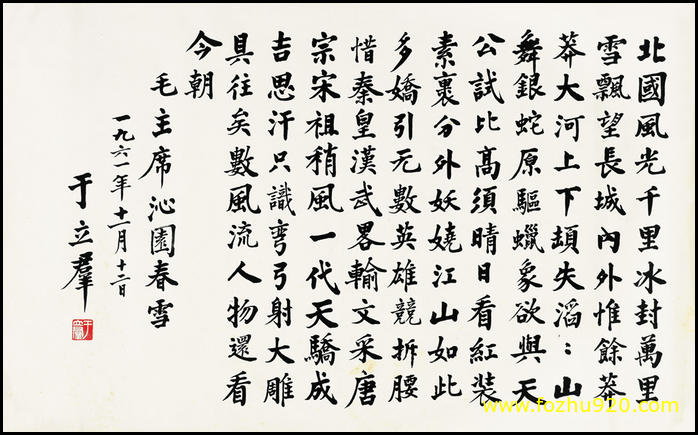 北國風光千里冰封萬里
雪飄望長城內外惟餘莽
莽大河上下頓失滔：山
舞銀蛇原驅蠟象欲與天
公試比高須晴日看紅裝
素裹分外妖嬈江山如此
多嬌引无數英雄競折腰
惜秦皇漢武畧輸文采唐
宗宋祖稍風一代天驕成
吉思汗只識彎弓射大雕
具往矣數風流人物還看
今朝
毛主席沁園春雪
一九六一年十一月十二日
于立羣
www.fozhu920.com